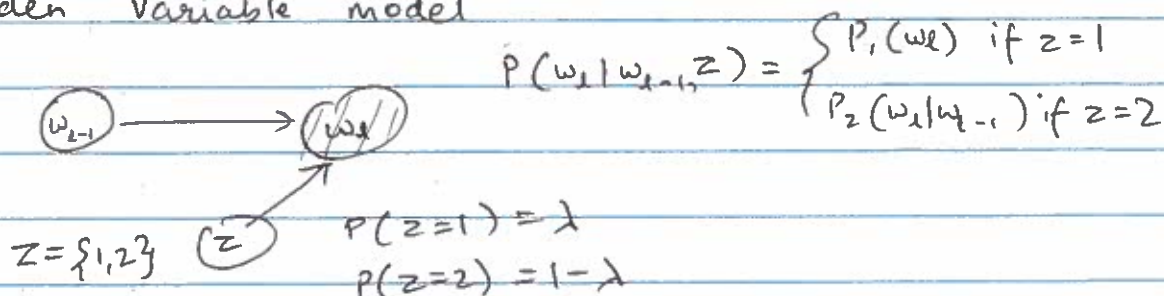 Variable model
P(wℓ|wℓ-1, z) = { P₁(wℓ) if z=1
P₂(wℓ|wℓ-1) if z=2
wℓ-1 wℓ
z={1,2} z P(z=1) = λ
P(z=2) = 1-λ